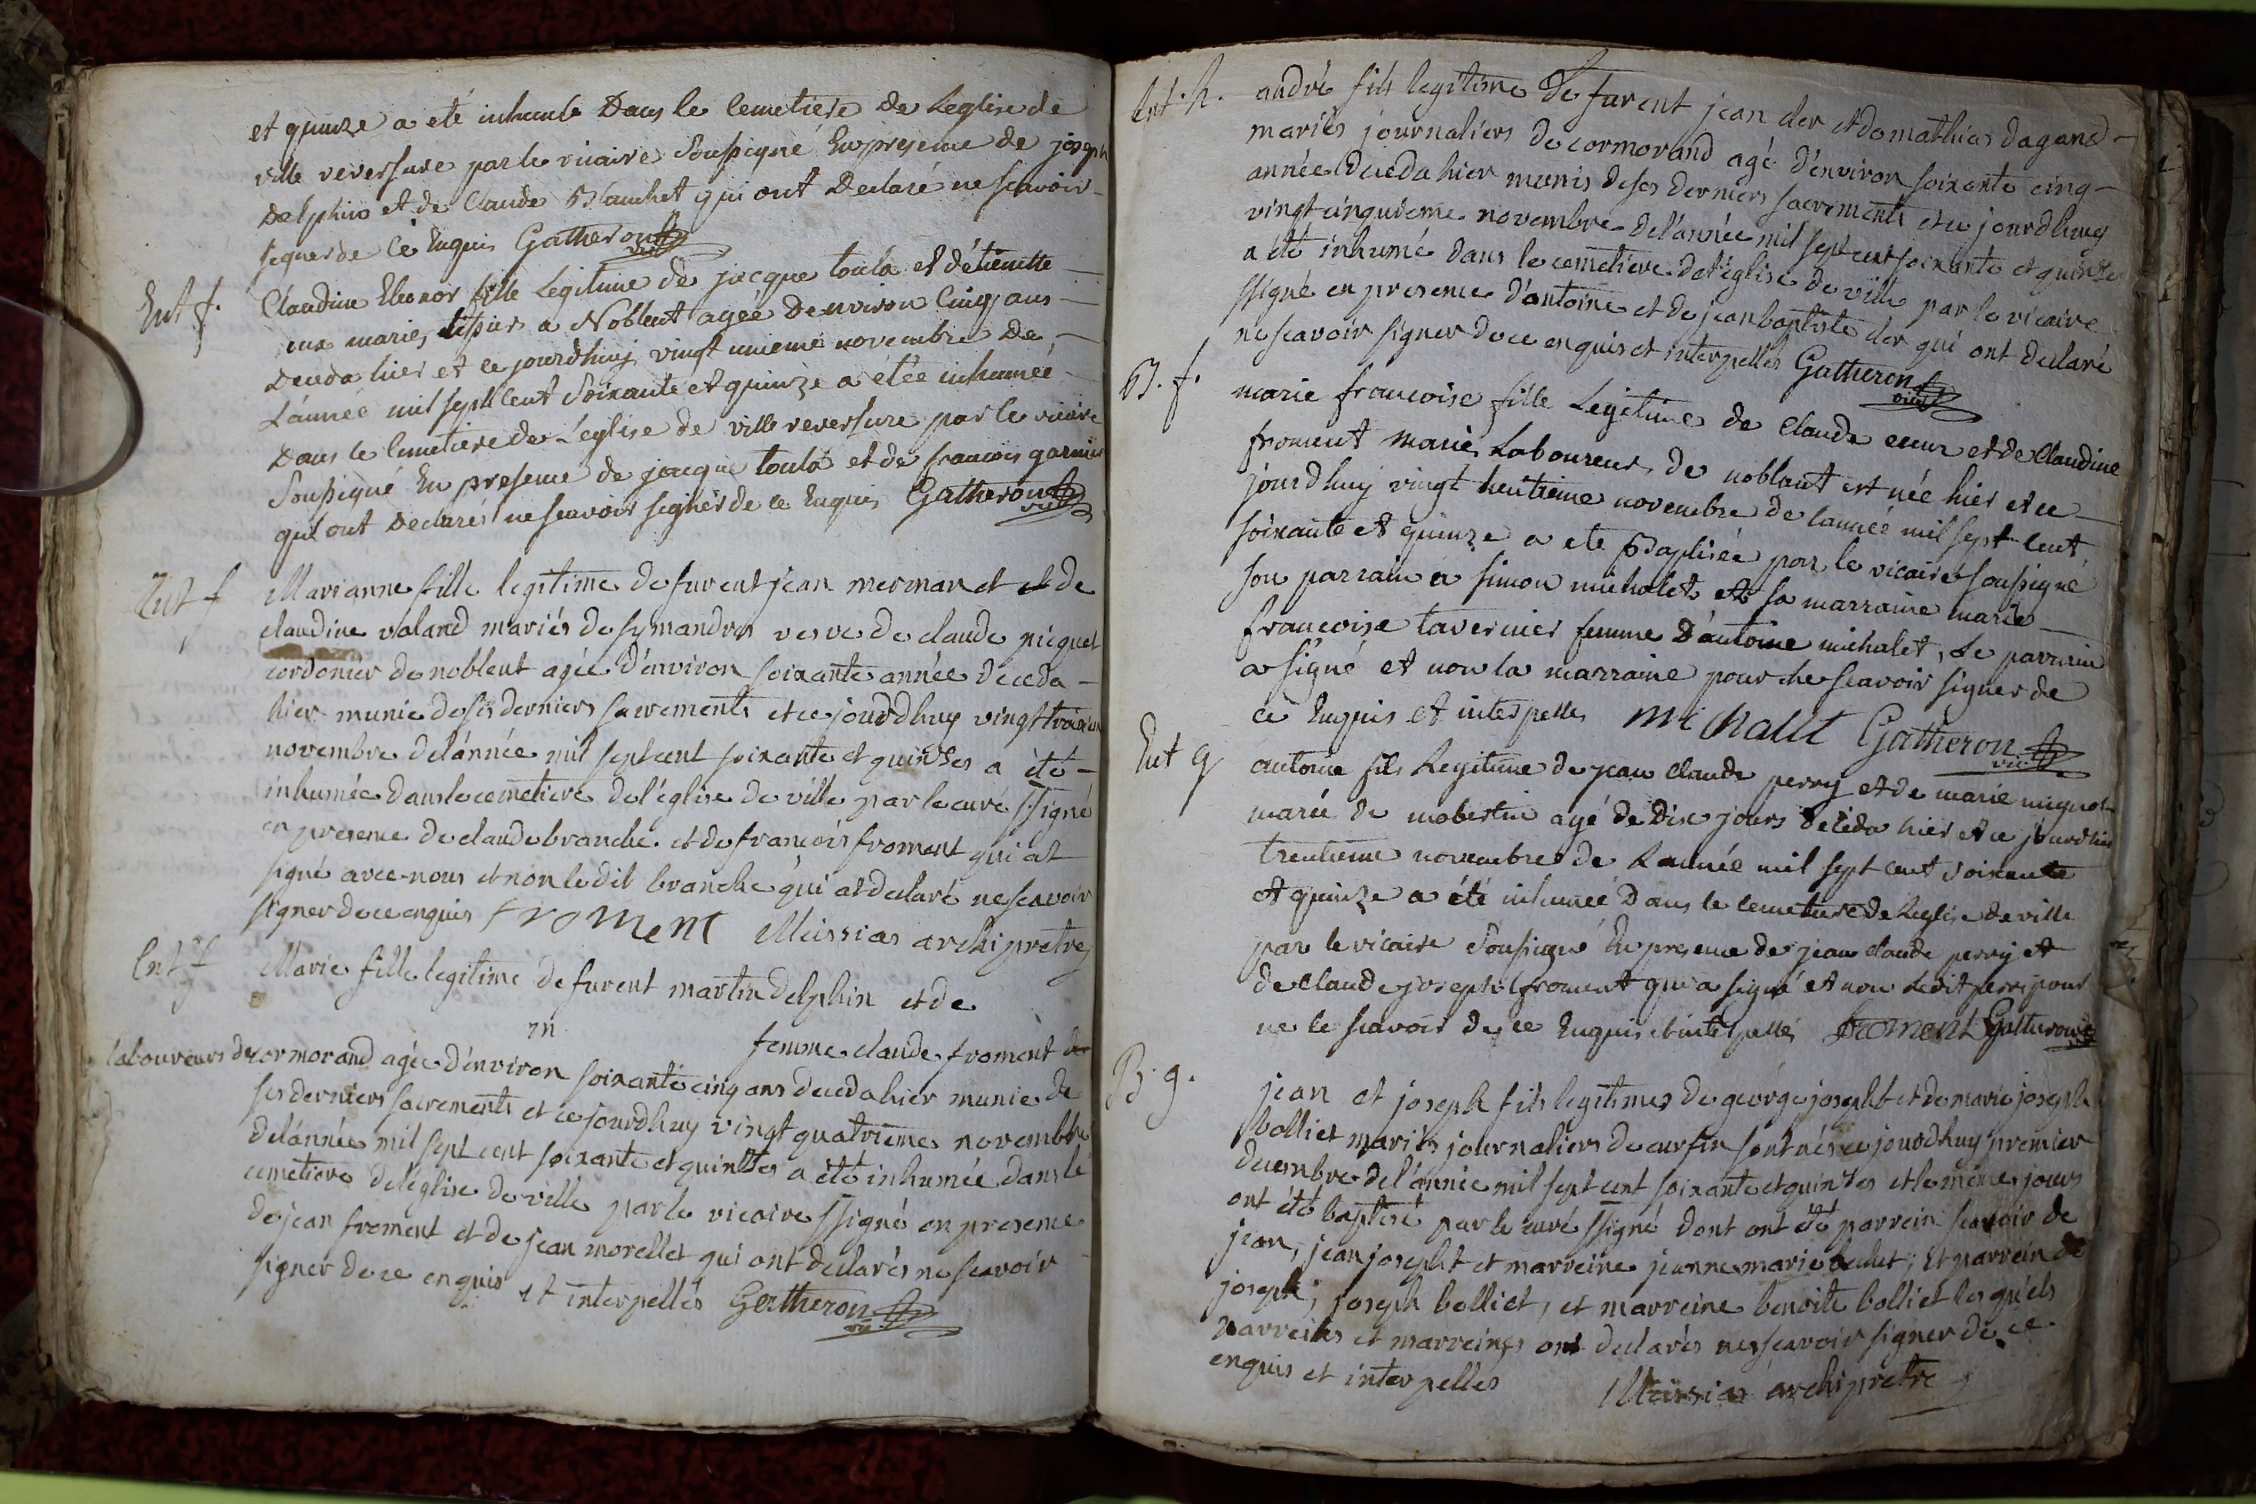 et quinze a eté inhumé Dans le Cemetiere de Leglise de
ville reversure par le vicaire Soussigné En presence de joseph
Delphin et de Claude Blanchet qui ont Declaré ne scavoir
signer de Ce Enquis Gatheron vic
Ent f. Claudine Eleonor fille Legitime de jacque toula et d'etienette
mariés a Noblent agée Denviron Cinq ans
Deceda hier et ce jourdhuy vingt unieme novembre De
L'année mil sept Cent Soixante et quinze a étée inhumée
Dans le Cemetiere de Leglise de ville reversure par le vicaire
Soussigné En presence de jacque toula et de francois garnier
qui ont Declarés ne scavoir signer de ce Enquis Gatheron vic
Ent f Marianne fille legitime de furent jean mermand et de
claudine valand mariés de symandres veve de claude picquet
cordonier de noblent agée d'environ soixante année deceda
hier munie de ses derniers sacrements et ce jourdhuy vingt troisieme
novembre de l'année mil sept cent soixante et quinzes a été
inhumée dans le cemetiere de l'église de ville par le curé ssigné
en presence de claude branche et de francois froment qui at
signé avec nous et non le dit branche qui at declaré ne scavoir
signer de ce enquis froment Massias archipretre
Ent f Marie fille legitime de furent martin delphin et de
femme claude froment
laboureurs de cormorand agée d'environ soixante cinq ans deceda hier munie de
ses derniers sacrements et ce jourdhuy vingt quatrieme novembre
de l'année mil sept cent soixante et quinzes a été inhumée dans le
cemetiere de l'église de ville par le vicaire ssigné en presence
de jean froment et de jean morellet qui ont declarés ne scavoir
signer de ce enquis et interpellés Gatheron vic
Ent. h. andré fils legitime de furent jean cler et de mathias dagand
mariés journaliers de cormorand agé d'environ soixante cinq
année deceda hier munis de ses derniers sacrements et ce jourdhuy
vingt cinquieme novembre de l'année mil sept cent soixante et quinzes
a été inhumé dans le cemetiere de l'église de ville par le vicaire
ssigné en presence d'antoine et de jean baptiste cler qui ont declaré
ne scavoir signer de ce enquis et interpellés Gatheron vic
B. f. marie francoise fille Legitime de Claude et de Claudine
froment mariés Laboureurs de noblant est née hier et ce
jourdhuy vingt huitieme novembre de lannée mil sept Cent
soixante et quinze a eté Baptisée par le vicaire soussigné
son parrain a simon michalet et sa marraine marie
francoise tavernier femme D'antoine michalet, Le parrain
a signé et non la marraine pour ne scavoir signer de
ce Enquis et interpellés Michallet Gatheron vic
Ent g antoine fils Legitime de jean Claude perry et de marie mignot
mariés de mobertin agé de Dix jours deceda hier et ce jourdhui
trentieme novembre de Lannée mil sept Cent soixante
et quinze a été inhumé Dans le Cemetiere de Leglise de ville
par le vicaire Soussigné En presence de jean Claude perry et
de Claude joseph froment qui a signé et non Ledit perry pour
ne le scavoir de ce Enquis et interpellés froment Gatheron vic
B. g. jean et joseph fils legitimes de george josepht et de marie joseph
bolliet mariés journaliers de curfin sont nés ce jourdhuy premier
decembre de l'année mil sept cent soixante et quinzes et le même jours
ont été baptisé par le curé ssigné dont ont été parrein scavoir de
jean, jean josepht et marreine jeanne marie ; Et parrein de
joseph, joseph bolliet, et marreine benoite bolliet lesquels
parreins et marreines ont declarés ne scavoir signer de ce
enquis et interpelles Massias archipretre